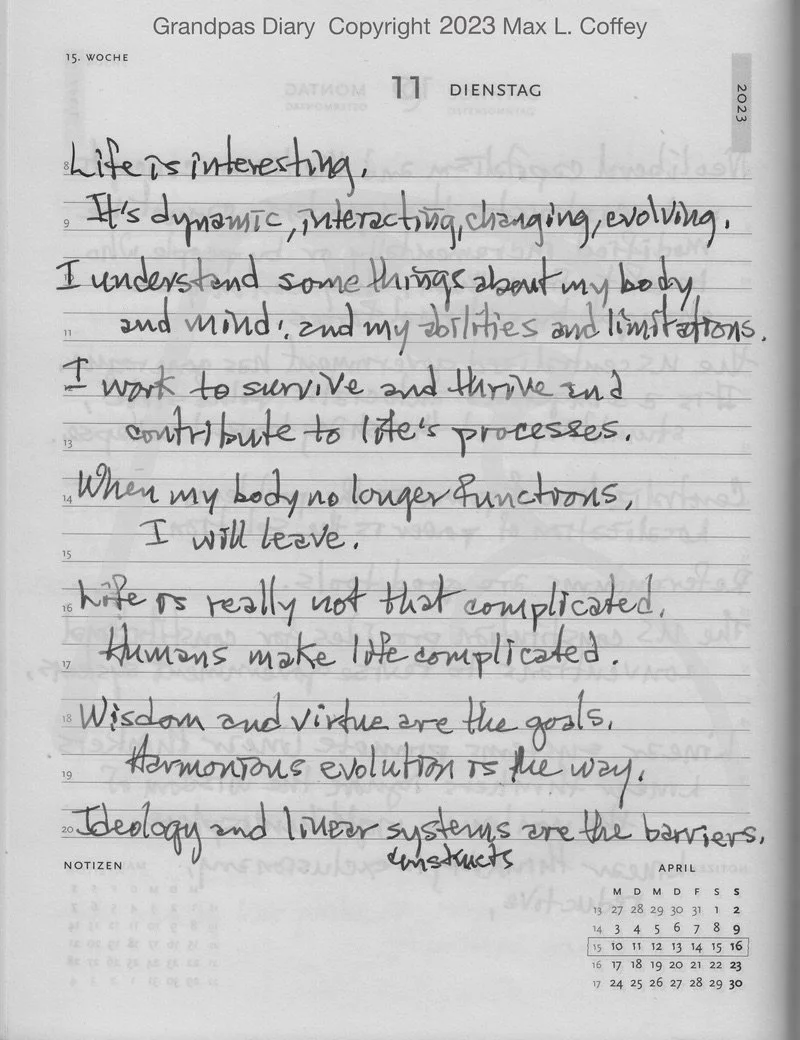 Grandpas Diary  Copyright 2023 Max L. Coffey
15. WOCHE
11 DIENSTAG
2023
8 Life is interesting.
9 It's dynamic, interacting, changing, evolving.
I understand some things about my body
11 and mind, and my abilities and limitations.
I work to survive and thrive and
13 contribute to life's processes.
14 When my body no longer functions,
I will leave.
15
16 Life is really not that complicated.
17 Humans make life complicated.
18 Wisdom and virtue are the goals.
19 Harmonious evolution is the way.
20 Ideology and linear systems are the barriers.
constructs
NOTIZEN
APRIL
M D M D F S S
13 27 28 29 30 31 1 2
14 3 4 5 6 7 8 9
15 10 11 12 13 14 15 16
16 17 18 19 20 21 22 23
17 24 25 26 27 28 29 30